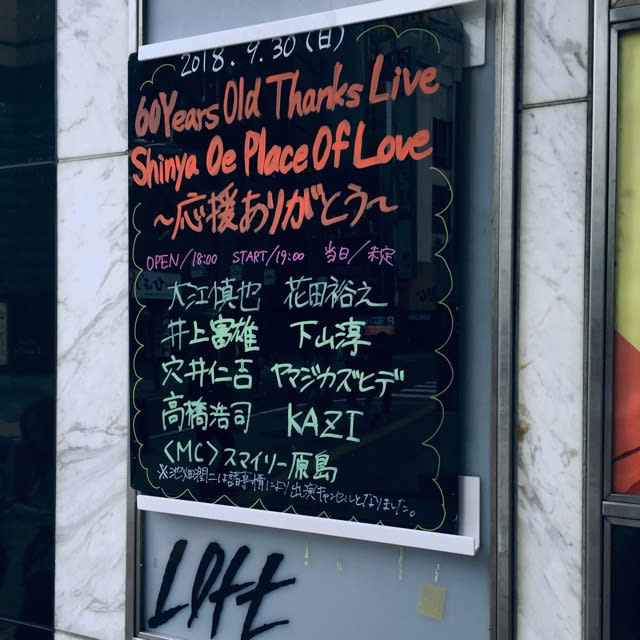 2018.9.30(日)
60 Years Old Thanks Live
Shinya Oe Place Of Love
~応援ありがとう~
OPEN/18:00 START/19:00 当日/未定
大江慎也 花田裕之
井上富雄 下山淳
穴井仁吉 ヤマジカズヒデ
高橋浩司 KAZI
<MC>スマイリー原島
※池畑潤二は諸事情により出演キャンセルとなりました。
Loft